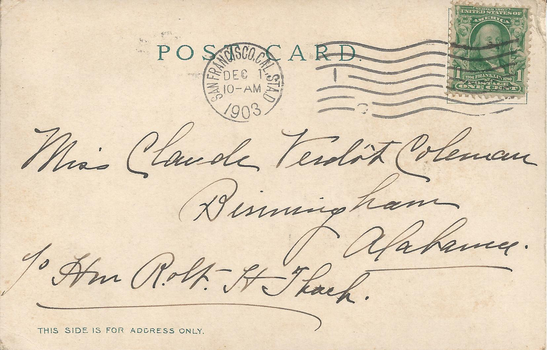 POST CARD.
SAN FRANCISCO, CAL. STA. D
DEC 1
10-AM
1903
UNITED STATES OF AMERICA
1 1
ONE CENT
Miss Claude Verdôt Coleman
Birmingham
Alabama.
c/o Hon Robt. H Thach.
THIS SIDE IS FOR ADDRESS ONLY.